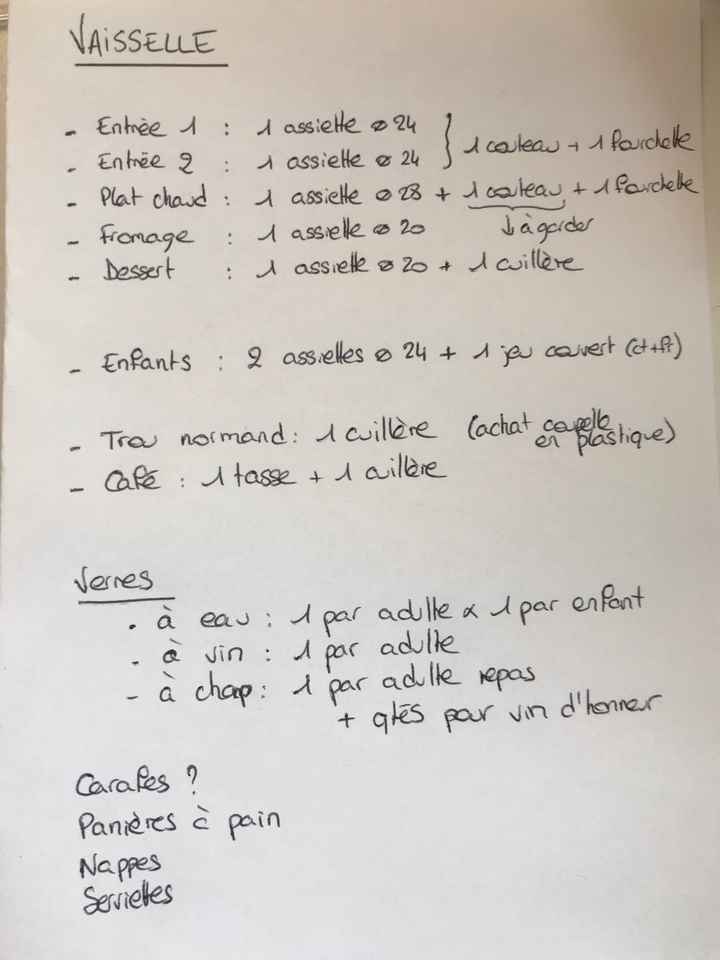 VAISSELLE
- Entrée 1 : 1 assiette ø 24
- Entrée 2 : 1 assiette ø 24
} 1 couteau + 1 fourchette
- Plat chaud : 1 assiette ø 28 + 1 couteau + 1 fourchette
- Fromage : 1 assiette ø 20
↓ à garder
- Dessert : 1 assiette ø 20 + 1 cuillère
- Enfants : 2 assiettes ø 24 + 1 jeu couvert (ct+ft)
- Trou normand : 1 cuillère (achat coupelle
en plastique)
- Café : 1 tasse + 1 cuillère
Verres
- à eau : 1 par adulte & 1 par enfant
- à vin : 1 par adulte
- à champ : 1 par adulte repas
+ qtés pour vin d'honneur
Carafes ?
Panières à pain
Nappes
Serviettes